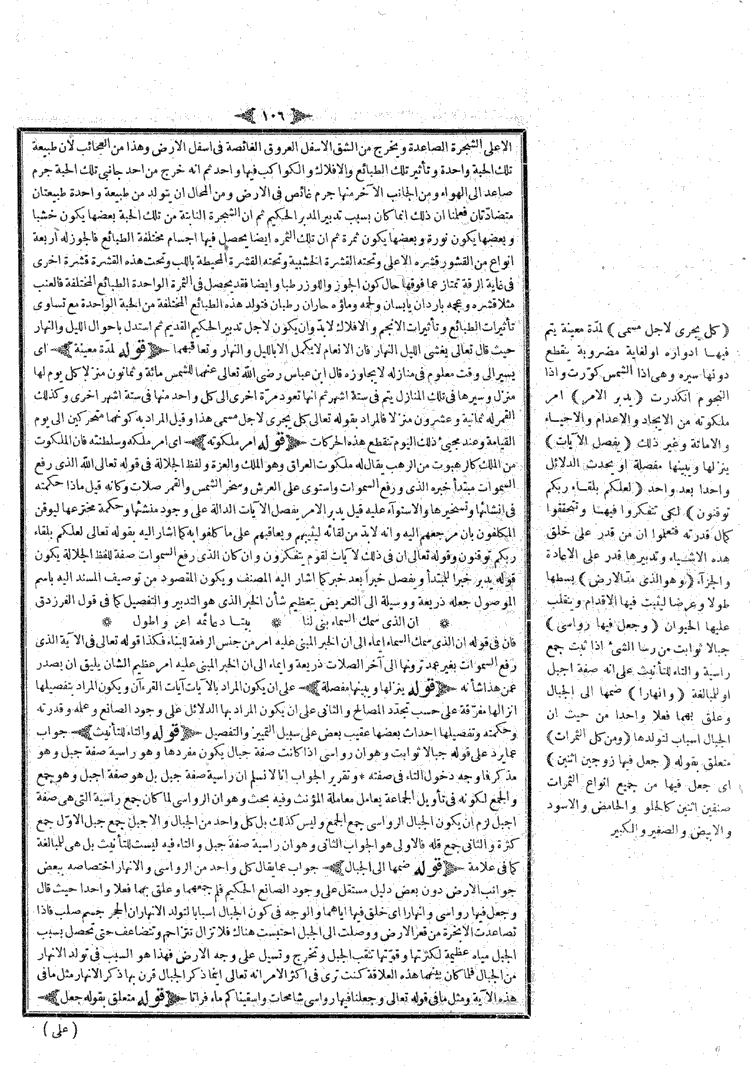 ﴿ ١٠٦ ﴾
الاعلى الشجرة الصاعدة ويخرج من الشق الاسفل العروق الغائصة فى اسفل الارض وهذا من العجائب لأن طبيعة
تلك الحبة واحدة وتأثير تلك الطبائع والافلاك والكواكب فيها واحد ثم انه خرج من احد جانبى تلك الحبة جرم
صاعد الى الهواء ومن الجانب الآخر منها جرم غائص فى الارض ومن المحال ان يتولد من طبيعة واحدة طبيعتان
متضادتان فعلمنا ان ذلك انما كان بسبب تدبير المدبر الحكيم ثم ان الشجرة النابتة من تلك الحبة بعضها يكون خشبا
وبعضها يكون نورة وبعضها يكون ثمرة ثم ان تلك الثمره ايضا يحصل فيها اجسام مختلفة الطبائع فالجوز له أربعة
انواع من القشور قشره الاعلى وتحته القشرة الخشبية وتحته القشرة المحيطة باللب وتحت هذه القشرة قشرة اخرى
فى غاية الرقة تمتاز عما فوقها حال كون الجوز واللوز رطبا وايضا فقد يحصل فى الثمرة الواحدة الطبائع المختلفة فالعنب
مثلا قشره وعجمه باردان يابسان ولحمه وماؤه حاران رطبان فتولد هذه الطبائع المختلفة من الحبة الواحدة مع تساوى
تأثيرات الطبائع وتأثيرات الانجم والافلاك لابد وان يكون لاجل تدبير الحكيم القديم ثم استدل باحوال الليل والنهار
حيث قال تعالى يغشى الليل النهار فان الانعام لا يكمل الا بالليل والنهار وتعاقبهما ﴿ قوله لمدة معينة ﴾ اى
يسير الى وقت معلوم فى منازله لا يجاوزه قال ابن عباس رضى الله تعالى عنهما للشمس مائة وثمانون منزلا كل يوم لها
منزل وسيرها فى تلك المنازل يتم فى ستة اشهر ثم انها تعود مرة اخرى الى كل واحد منها فى ستة اشهر اخرى وكذلك
القمر له ثمانية وعشرون منزلا فالمراد بقوله تعالى كل يجرى لاجل مسمى هذا وقيل المراد به كونهما متحركين الى يوم
القيامة وعند مجيئ ذلك اليوم تنقطع هذه الحركات ﴿ قوله امر ملكوته ﴾ اى امر ملكه وسلطنته فان الملكوت
من الملك كالرهبوت من الرهب يقال له ملكوت العراق وهو الملك والعزة ولفظ الجلالة فى قوله تعالى الله الذى رفع
السموات مبتدأ خبره الذى ورفع السموات واستوى على العرش وسخر الشمس والقمر صلات وكانه قيل ماذا حكمته
فى انشائها وتسخيرها والاستوآء عليه قيل يدبر الامر يفصل الآيات الدالة على وجود منشئها وحكمة مخترعها ليوقن
المكلفون بان مرجعهم اليه وانه لابد من لقائه ليثيبهم ويعاقبهم على ما كلفوا به كما اشار اليه بقوله تعالى لعلكم بلقاء
ربكم توقنون وقوله تعالى ان فى ذلك لآيات لقوم يتفكرون وان كان الذى رفع السموات صفة للفظ الجلالة يكون
قوله يدبر خبرا للمبتدأ ويفصل خبراً بعد خبر كما اشار اليه المصنف ويكون المقصود من توصيف المسند اليه باسم
الموصول جعله ذريعة ووسيلة الى التعريض بتعظيم شأن الخبر الذى هو التدبير والتفصيل كما فى قول الفرزدق
ان الذى سمك السماء بنى لنا * بيتا دعائمه اعز واطول *
فان فى قوله ان الذى سمك السماء ايماء الى ان الخبر المبنى عليه امر من جنس الرفعة للبناء فكذا قوله تعالى فى الآية الذى
رفع السموات بغير عمد ترونها الى آخر الصلات ذريعة وايماء الى ان الخبر المبنى عليه امر عظيم الشان يليق ان يصدر
عمن هذا شأنه ﴿ قوله ينزلها ويبينها مفصلة ﴾ على ان يكون المراد بالآيات آيات القرءآن ويكون المراد بتفصيلها
انزالها مفرقة على حسب تجدد المصالح والثانى على ان يكون المراد بها الدلائل على وجود الصانع وعلمه وقدرته
وحكمته وتفصيلها احداث بعضها عقيب بعض على سبيل التمييز والتفصيل ﴿ قوله والتاء للتأنيث ﴾ جواب
عما يرد على قوله جبالا ثوابت وهو ان رواسى اذا كانت صفة جبال يكون مفردها وهو راسية صفة جبل وهو
مذكر فما وجه دخول التاء فى صفته * وتقرير الجواب انا لا نسلم ان راسية صفة جبل بل هو صفة اجبل وهو جمع
والجمع لكونه فى تأويل الجماعة يعامل معاملة المؤنث وفيه بحث وهو ان الرواسى لما كان جمع راسية التى هى صفة
اجبل لزم ان يكون الجبال الرواسى جمع الجمع وليس كذلك بل كل واحد من الجبال والاجبل جمع جبل الاول جمع
كثرة والثانى جمع قلة فالاولى هو الجواب الثانى وهو ان راسية صفة جبل والتاء فيه ليست للتأنيث بل هى للمبالغة
كما فى علامة ﴿ قوله ضمها الى الجبال ﴾ جواب عما يقال كل واحد من الرواسى والانهار اختصاصه ببعض
جوانب الارض دون بعض دليل مستقل على وجود الصانع الحكيم فلم جمعهما وعلق بهما فعلا واحدا حيث قال
وجعل فيها رواسى وانهارا اى خلق فيها اياهما والوجه فى كون الجبال اسبابا لتولد الانهار ان الحجر جسم صلب فاذا
تصاعدت الابخرة من قعر الارض ووصلت الى الجبل احتبست هناك فلا تزال تتزاحم وتتضاعف حتى تحصل بسبب
الجبل مياه عظيمة لكثرتها وقوتها تنقب الجبل وتخرج وتسيل على وجه الارض فهذا هو السبب فى تولد الانهار
من الجبال فلما كان بينهما هذه العلاقة كنت ترى فى اكثر الامر انه تعالى اينما ذكر الجبال قرن بها ذكر الانهار مثل ما فى
هذه الآية ومثل ما فى قوله تعالى وجعلنا فيها رواسى شامخات واسقيناكم ماء فراتا ﴿ قوله متعلق بقوله جعل ﴾
( على )
( كل يجرى لاجل مسمى ) لمدة معينة يتم
فيها ادواره او لغاية مضروبة ينقطع
دونها سيره وهى اذا الشمس كورت واذا
النجوم انكدرت ( يدبر الامر ) امر
ملكوته من الايجاد والاعدام والاحياء
والاماتة وغير ذلك ( يفصل الآيات )
ينزلها ويبينها مفصلة او يحدث الدلائل
واحدا بعد واحد ( لعلكم بلقاء ربكم
توقنون ) لكى تتفكروا فيها وتتحققوا
كمال قدرته فتعلموا ان من قدر على خلق
هذه الاشياء وتدبيرها قدر على الاعادة
والجزآء ( وهو الذى مد الارض ) بسطها
طولا وعرضا ليثبت فيها الاقدام وينقلب
عليها الحيوان ( وجعل فيها رواسى )
جبالا ثوابت من رسا الشئ اذا ثبت جمع
راسية والتاء للتأنيث على انه صفة اجبل
او للمبالغة ( وانهارا ) ضمها الى الجبال
وعلق بهما فعلا واحدا من حيث ان
الجبال اسباب لتولدها ( ومن كل الثمرات )
متعلق بقوله ( جعل فيها زوجين اثنين )
اى جعل فيها من جميع انواع الثمرات
صنفين اثنين كالحلو والحامض والاسود
والابيض والصغير والكبير